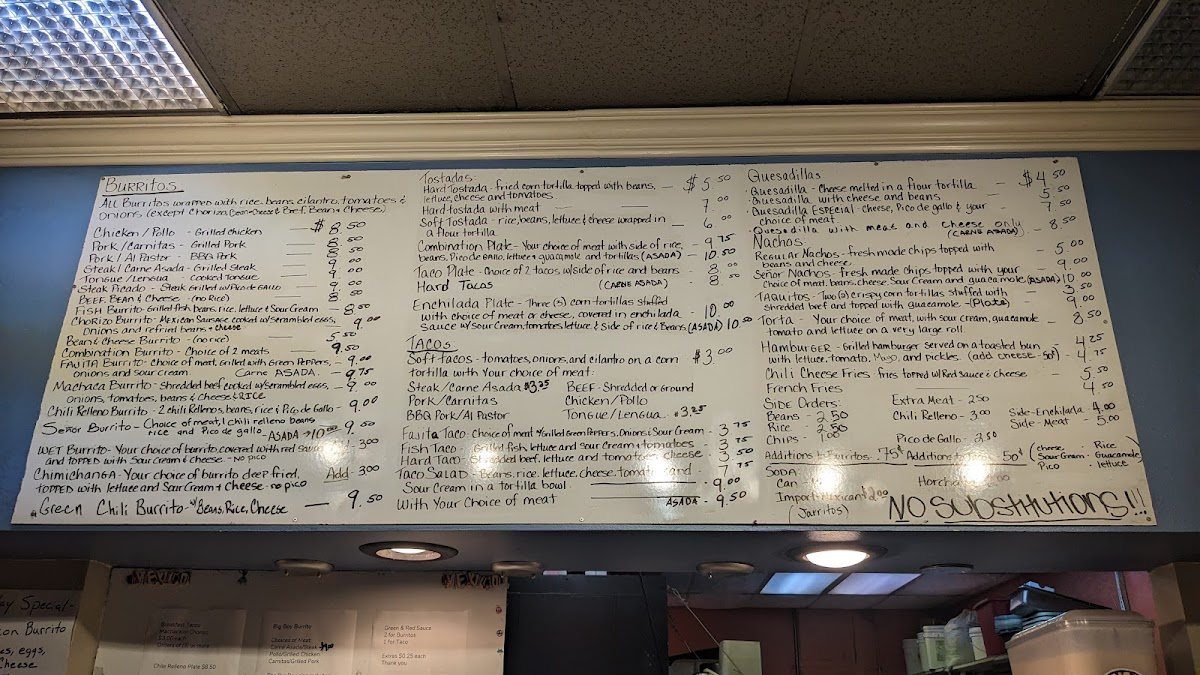 BURRITOS
All Burritos wrapped with rice, beans, cilantro, tomatoes &
onions (except Chorizo, Bean-Cheese & Beef, Bean & Cheese)
Chicken/Pollo - Grilled chicken — $8.50
Pork/Carnitas - Grilled Pork — 8.50
Pork/Al Pastor - BBQ Pork — 8.50
Steak/Carne Asada - Grilled Steak — 9.00
Tongue/Lengua - Cooked Tongue — 9.00
Steak Picado - Steak Grilled w/Pico de GALLO — 9.00
BEEF BEAN & Cheese - (no Rice) — 8.50
Fish Burrito - Grilled fish, beans, rice, lettuce & Sour Cream — 8.50
Chorizo Burrito - Mexican Sausage cooked w/scrambled eggs, 9.00
onions and refried beans + cheese
Bean & Cheese Burrito - (no rice) 5.50
Combination Burrito - Choice of 2 meats — 9.50
FAJITA Burrito - Choice of meat, grilled with Green Peppers, - 9.00
onions and sour cream. Carne ASADA. - 9.75
Machaca Burrito - Shredded beef cooked w/scrambled eggs, - 9.00
onions, tomatoes, beans & cheese & RICE
Chili Relleno Burrito - 2 chili Rellenos, beans, rice & Pico de Gallo - 9.00
Señor Burrito - Choice of meat, 1 chili relleno, beans 9.50
rice and Pico de gallo ASADA → 10.00
WET Burrito - Your choice of burrito covered with red sauce 3.00
and TOPPED with Sour Cream & Cheese - no PICO
Chimichanga - Your choice of burrito deep fried, Add - 3.00
TOPPED with lettuce and Sour Cream & Cheese - no pico
Green Chili Burrito - w/ Beans, Rice, Cheese — 9.50
Tostadas:
Hard Tostada - fried corn tortilla topped with beans, — $5.50
lettuce, cheese and tomatoes.
Hard tostada with meat — 7.00
Soft Tostada - rice, beans, lettuce & cheese wrapped in 6.00
a flour tortilla
Combination Plate - Your choice of meat with side of rice, - 9.75
beans, Pico de Gallo, lettuce, guacamole and tortillas (ASADA) - 10.50
Taco Plate - Choice of 2 tacos w/side of rice and beans - 8.00
Hard Tacos (CARNE ASADA) - 8.50
Enchilada Plate - Three (3) corn tortillas stuffed
with choice of meat or cheese, covered in enchilada - 10.00
sauce w/Sour Cream, tomatoes, lettuce & Side of Rice & Beans (ASADA) 10.50
TACOS
Soft tacos - tomatoes, onions, and cilantro on a corn $3.00
tortilla with Your choice of meat:
Steak/Carne Asada $3.25 BEEF - Shredded or Ground
Pork/Carnitas Chicken/Pollo
BBQ Pork/Al Pastor Tongue/Lengua - $3.25
Fajita Taco - Choice of meat w/Grilled Green Peppers, Onions & Sour Cream - 3.75
Fish Taco - Grilled fish, lettuce and sour Cream & tomatoes - 3.75
Hard Taco - Shredded beef, lettuce and tomatoes, cheese - 3.50
Taco Salad - Beans, rice, lettuce, cheese, tomato and - 7.75
Sour Cream in a tortilla bowl 9.00
With Your Choice of meat ASADA - 9.50
Quesadillas
Quesadilla - Cheese melted in a flour tortilla — $4.50
Quesadilla with cheese and beans — 5.50
Quesadilla Especial - cheese, Pico de gallo & your - 7.50
choice of meat.
Quesadilla with meat and cheese only - 8.50
(CARNE ASADA)
Nachos:
Regular Nachos - fresh made chips topped with - 5.00
beans and cheese
Señor Nachos - fresh made chips topped with your 9.00
choice of meat, beans, cheese, Sour Cream and guacamole (ASADA) 10.00
TAQUITOS - Two (2) crispy corn tortillas stuffed with 3.50
shredded beef and topped with guacamole - (Plate) 9.00
Torta - Your choice of meat, with sour cream, guacamole - 8.50
tomato and lettuce on a very large roll
HAMBURGER - Grilled hamburger served on a toasted bun - 4.25
with lettuce, tomato, Mayo, and pickles. (add cheese - 50¢) - 4.75
Chili Cheese Fries - fries topped w/Red Sauce & cheese - 5.50
French Fries — 4.50
SIDE Orders: Extra Meat - 2.50
Beans - 2.50 Chili Relleno - 3.00 Side-Enchilada - 4.00
Rice - 2.50 Side-Meat - 5.00
Chips - 1.00 Pico de Gallo - 2.50
Additions to Burritos .75¢ Additions to 50¢ (cheese, Sour Cream, Pico Rice Guacamole lettuce)
SODA: Horchata
Can
Import Mexican $2.00
(Jarritos)
NO SUBSTITUTIONS!!!
MEXICO
MEXICO
Special -
Burrito
eggs,
Cheese
Breakfast Tacos
$3.00 each
Chile Relleno Plate $8.50
Big Boy Burrito
Choices of Meat:
Carne Asada/Steak
Pollo/Grilled Chicken
Carnitas/Grilled Pork
Green & Red Sauce
2 for Burritos
1 for Taco
Extras $0.25 each
Thank you